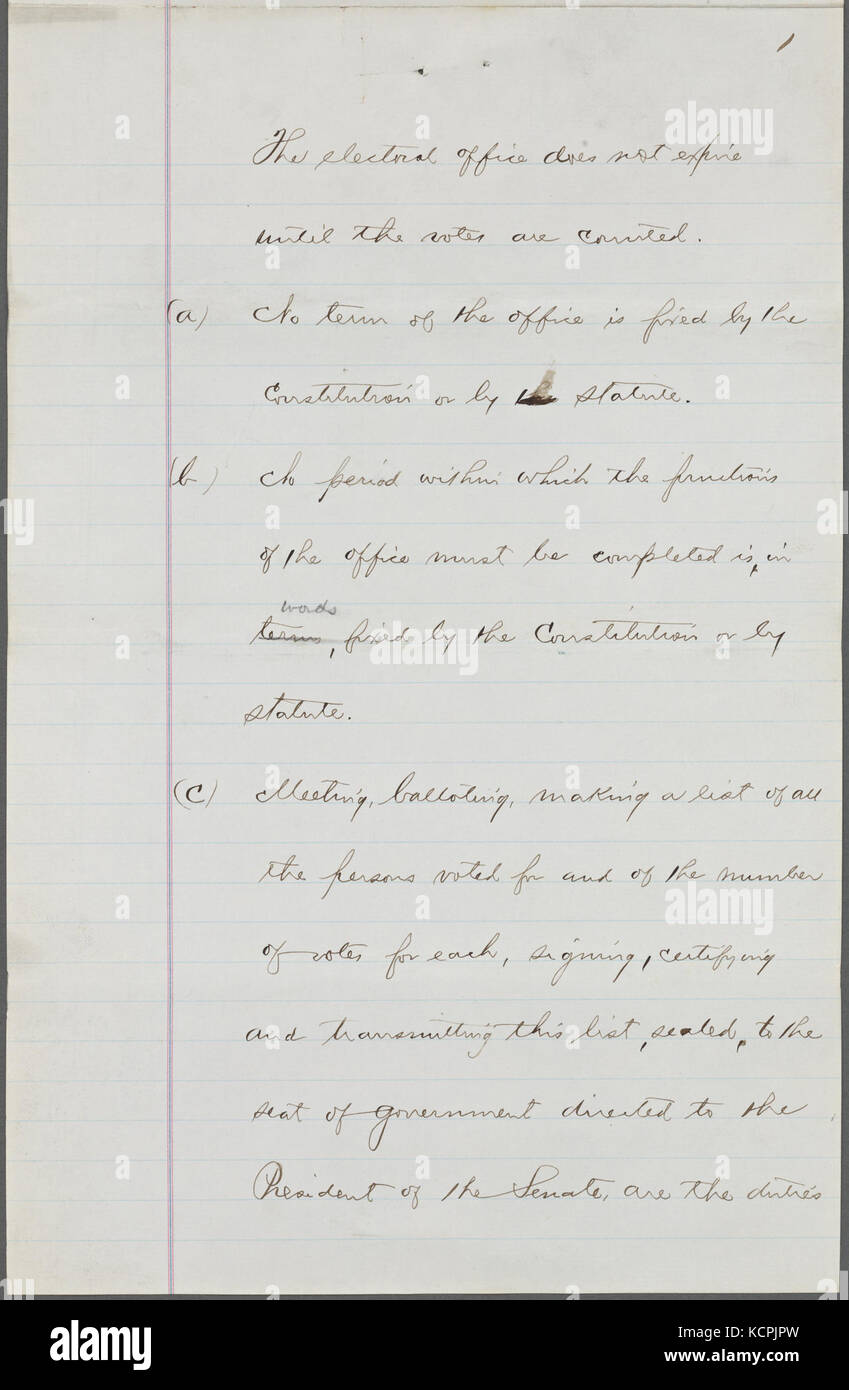 1
The electoral office does not expire
until the votes are counted.
(a) No term of the office is fixed by the
Constitution or by the statute.
(b) No period within which the functions
of the office must be completed is, in
words
terms, fixed by the Constitution or by
statute.
(c) Meeting, balloting, making a list of all
the persons voted for and of the number
of votes for each, signing, certifying
and transmitting this list, sealed, to the
seat of government directed to the
President of the Senate, are the duties
alamy
Image ID: KCPJPW
www.alamy.com